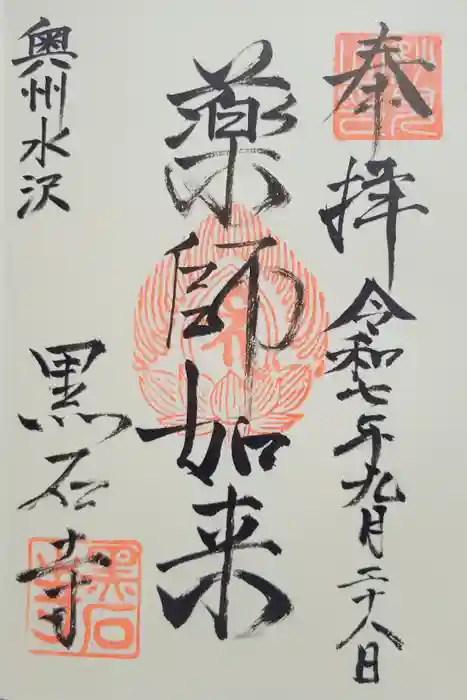 奉拝
令和七年九月二十八日
薬師如来
奥州水沢
黒石寺
黒石寺